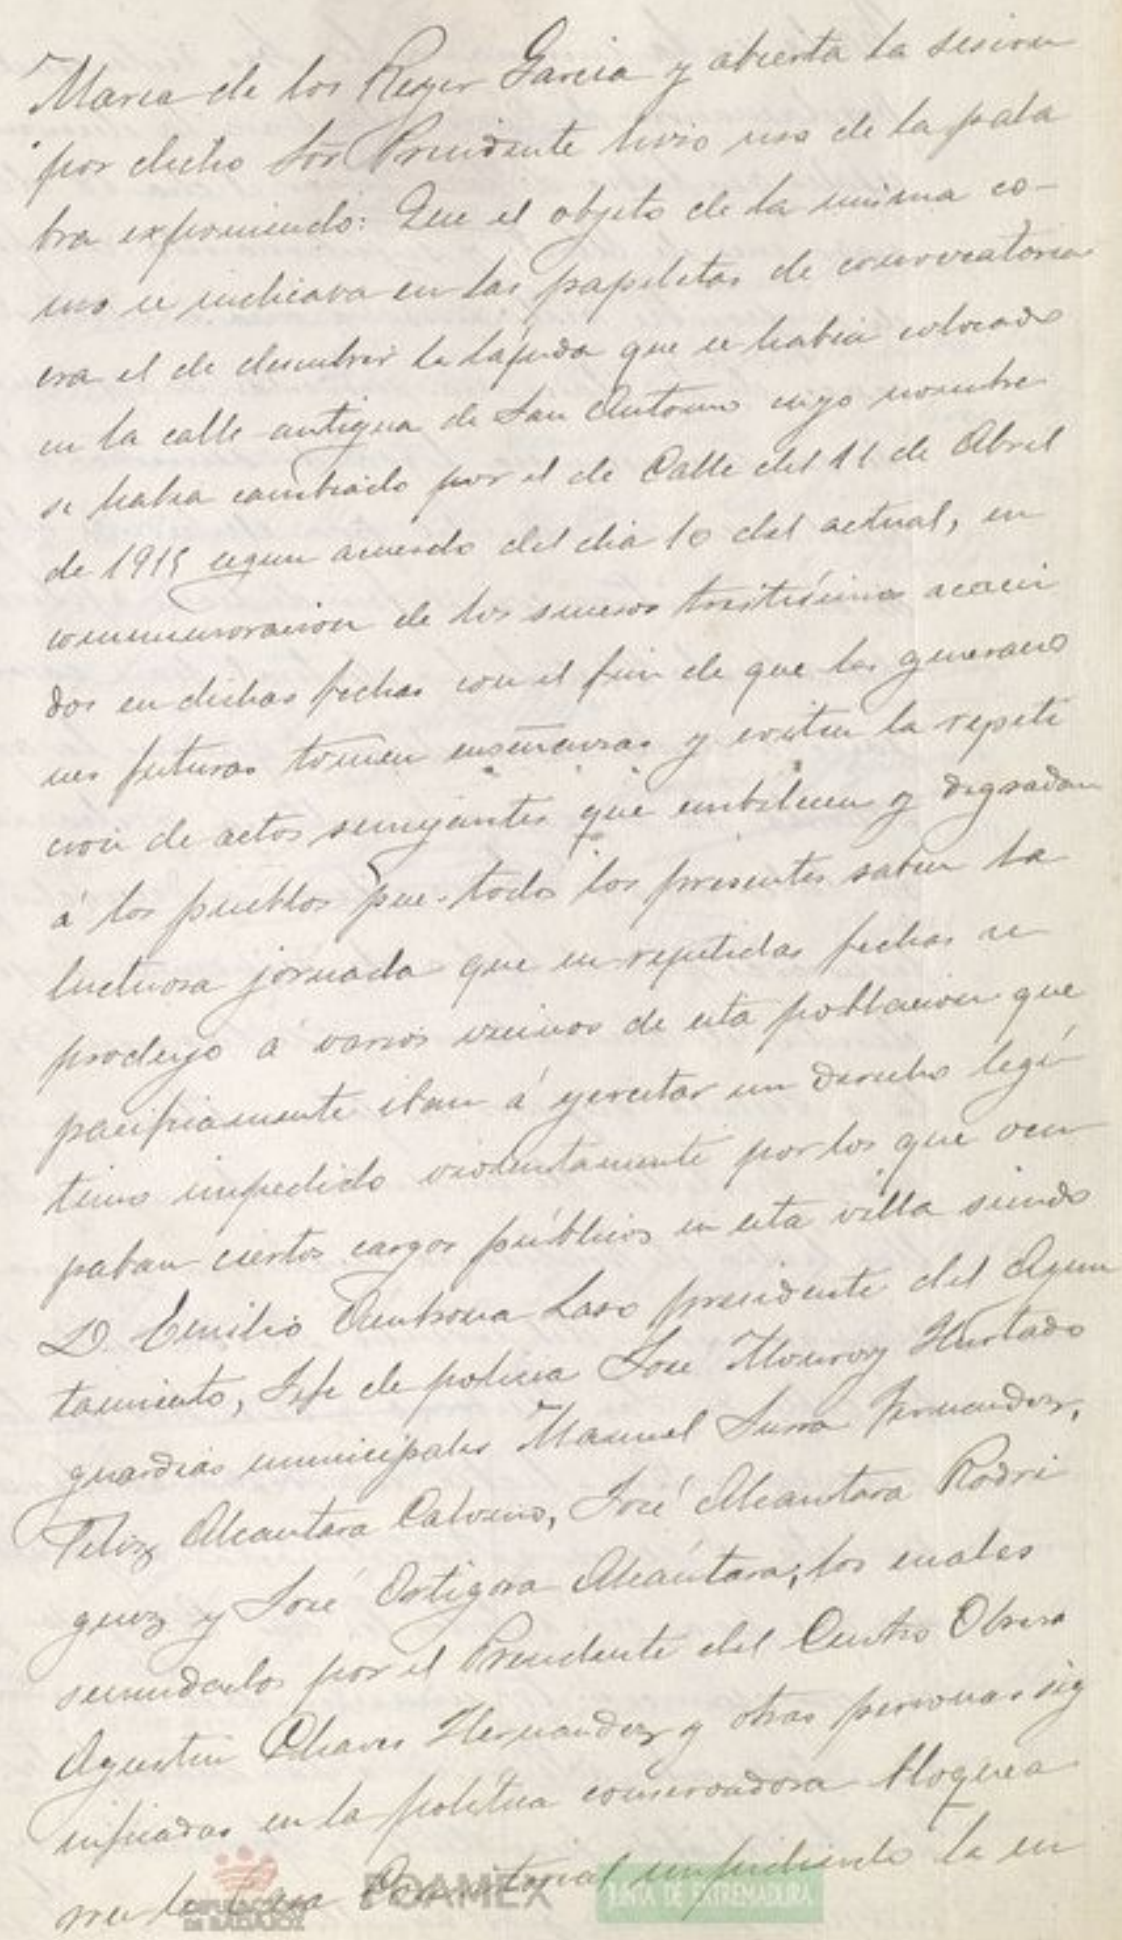 Maria de los Reyes Garcia y abierta la sesion
por dicho Sor Presidente hizo uso de la pala
bra exponiendo: Que el objeto de la misma co-
mo se indicava en las papeletas de convocatoria
era el de descubrir la lápida que se habia colocado
en la calle antigua de San Antonio cuyo nombre
se habia cambiado por el de Calle del 11 de Abril
de 1915 segun acuerdo del dia 10 del actual, en
conmemoracion de los sucesos tristísimos acaeci
dos en dichas fechas con el fin de que las generacio
nes futuras tomen enseñanzas y eviten la repeti
cion de actos semejantes que embilecen y degradan
á los pueblos pues todos los presentes saben la
luctuosa jornada que en repetidas fechas se
produjo á varios vecinos de esta poblacion que
pacificamente iban á ejercitar un derecho legí
timo impedido violentamente por los que ocu
paban ciertos cargos públicos en esta villa siendo
D. Emilio Ambrona Laso presidente del Ayun
tamiento, Jefe de policia Jose Monroy Hurtado
guardias municipales Manuel Serra Fernandez,
Feliz Alcantara Calvino, José Alcantara Rodri
guez y José Ortigosa Alcántara; los cuales
secundados por el Presidente del Centro Obrero
Agustin Chaves Hernandez y otras personas sig
nificadas en la politica conservadora bloquea
ron la Casa Consistorial impidiendo la en
DIPUTACIÓN DE BADAJOZ
FOAMEX
JUNTA DE EXTREMADURA